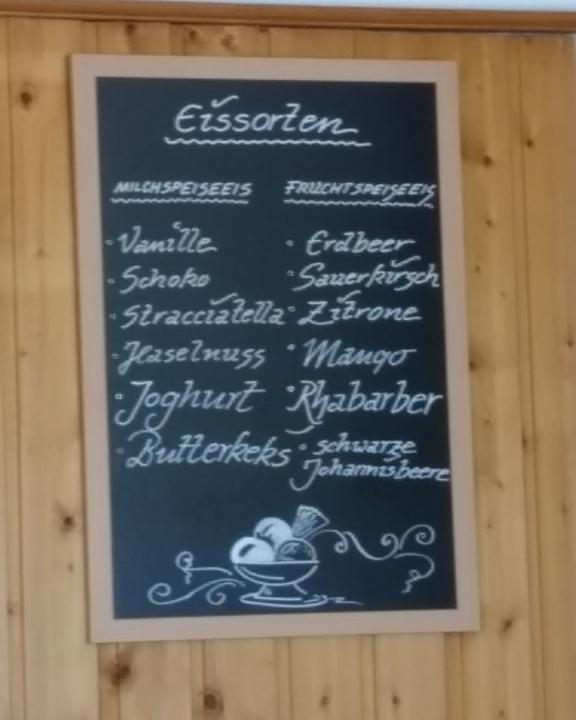 Eissorten
MILCHSPEISEEIS
Vanille
Schoko
Stracciatella
Haselnuss
Joghurt
Butterkeks
FRUCHTSPEISEEIS
Erdbeer
Sauerkirsch
Zitrone
Mango
Rhabarber
schwarze
Johannisbeere